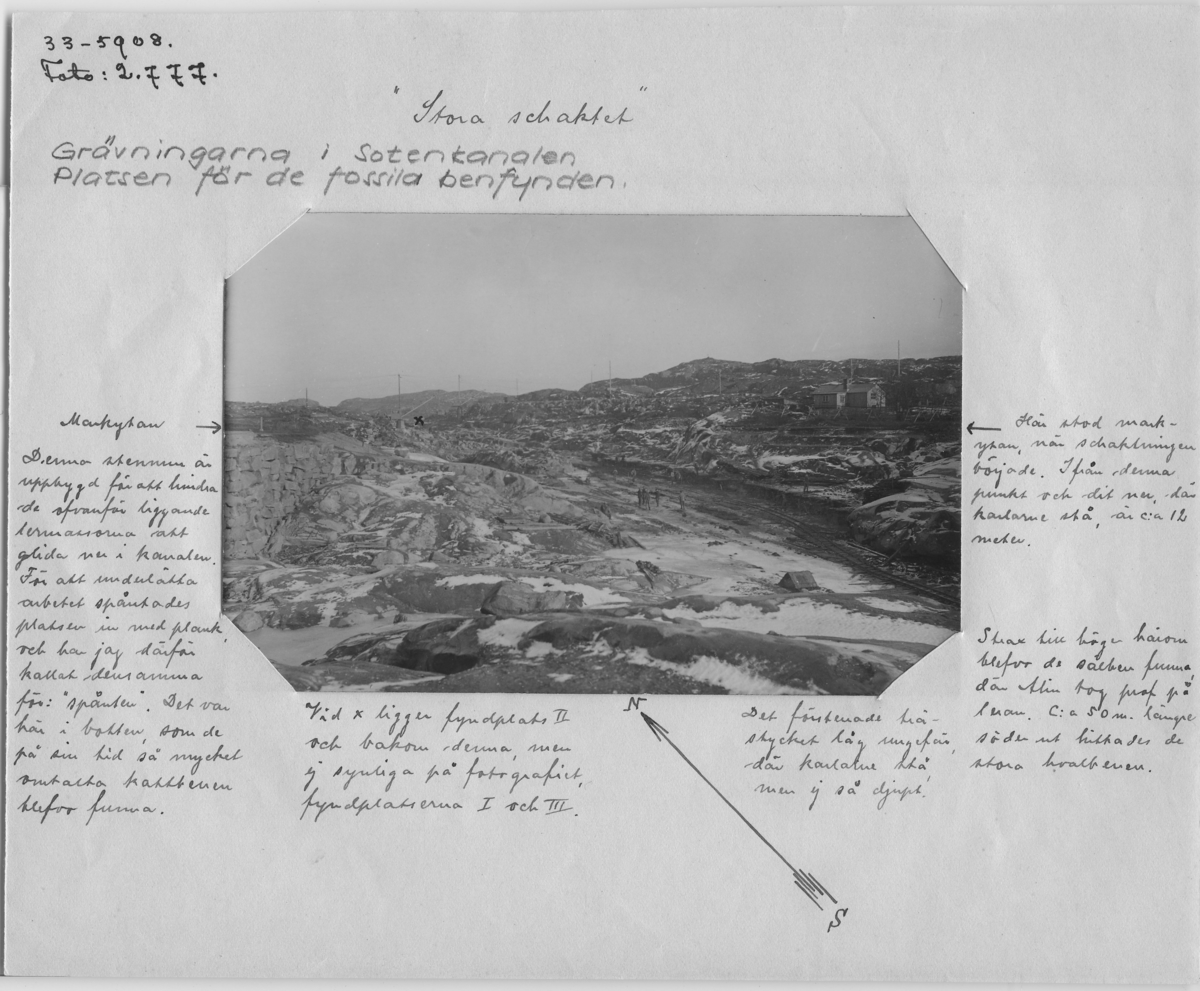 33-5908.
Foto: 2.777.
"Stora schaktet"
Grävningarna i Sotenkanalen
Platsen för de fossila benfynden.
Markytan
Denna stenmur är
uppbygd för att hindra
de ofvanför liggande
lermassorna att
glida ner i kanalen.
För att underlätta
arbetet spåntades
platsen in med plank,
och har jag därför
kallat densamma
för: "spånten". Det var
här i botten, som de
på sin tid så mycket
omtalta
blefvo funna.
x
Vid x ligger fyndplats II
och bakom denna, men
ej synliga på fotografiet,
fyndplatserna I och III.
N
S
Det förstenade trä-
stycket låg ungefär,
där karlarne stå,
men ej så djupt.
Här stod mark-
ytan, när schaktningen
började. Ifrån denna
punkt och dit ner, där
karlarne stå, är c:a 12
meter.
Strax till höger härom
blefvo de sälben funna,
där Alin tog prof på
leran. C:a 50 m. längre
söder ut hittades de
stora hvalbenen.